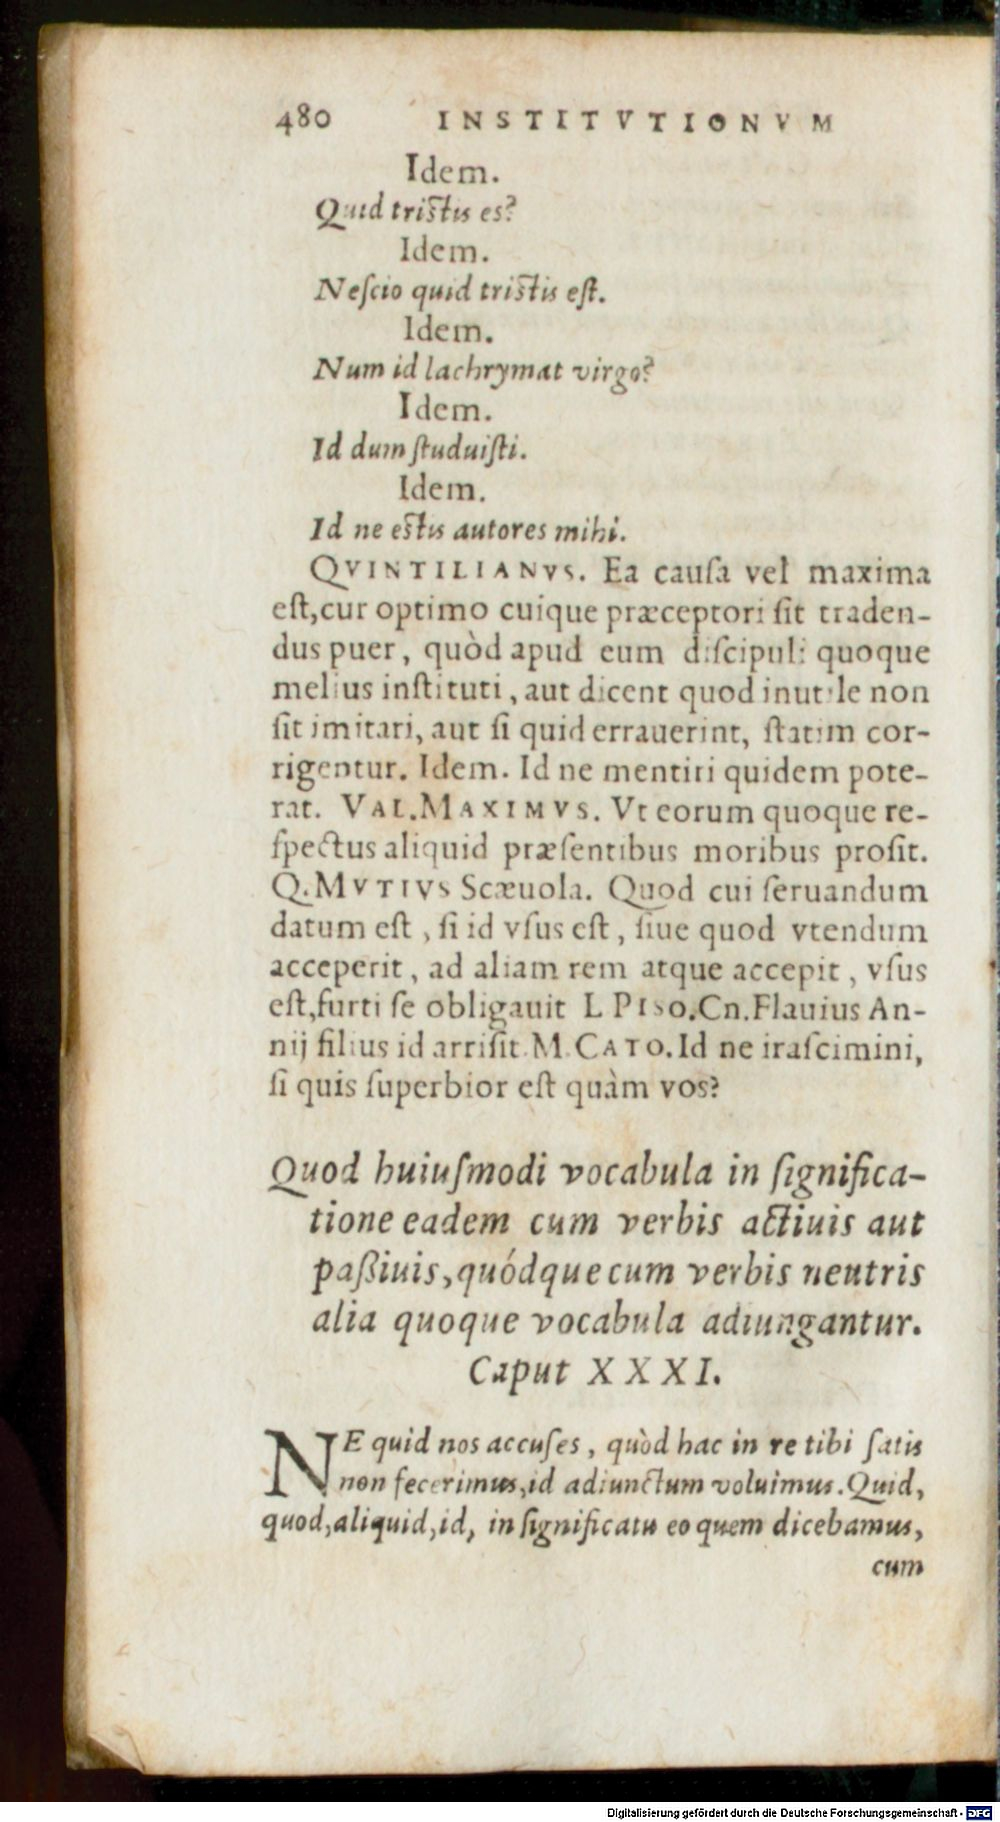 480 INSTITVTIONVM
Idem.
Quid tristis es?
Idem.
Neſcio quid tristis eſt.
Idem.
Num id lachrymat virgo?
Idem.
Id dum ſtuduiſti.
Idem.
Id ne estis autores mihi.
QVINTILIANVS. Ea cauſa vel maxima
eſt,cur optimo cuique præceptori ſit traden-
dus puer, quòd apud eum diſcipuli quoque
melius inſtituti, aut dicent quod inutile non
ſit imitari, aut ſi quid errauerint, ſtatim cor-
rigentur. Idem. Id ne mentiri quidem pote-
rat. VAL.MAXIMVS. Vt eorum quoque re-
ſpectus aliquid præſentibus moribus proſit.
Q.MVTIVS Scæuola. Quod cui ſeruandum
datum eſt, ſi id vſus eſt, ſiue quod vtendum
acceperit, ad aliam rem atque accepit, vſus
eſt,furti ſe obligauit L PISO.Cn.Flauius An-
nij filius id arriſit.M.CATO.Id ne iraſcimini,
ſi quis ſuperbior eſt quàm vos?
Quod huiuſmodi vocabula in ſignifica-
tione eadem cum verbis actiuis aut
paßiuis,quódque cum verbis neutris
alia quoque vocabula adiungantur.
Caput XXXI.
NE quid nos accuſes, quòd hac in re tibi ſatis
non fecerimus,id adiunctum voluimus.Quid,
quod,aliquid,id, in ſignificatu eo quem dicebamus,
cum
Digitalisierung gefördert durch die Deutsche Forschungsgemeinschaft - DFG